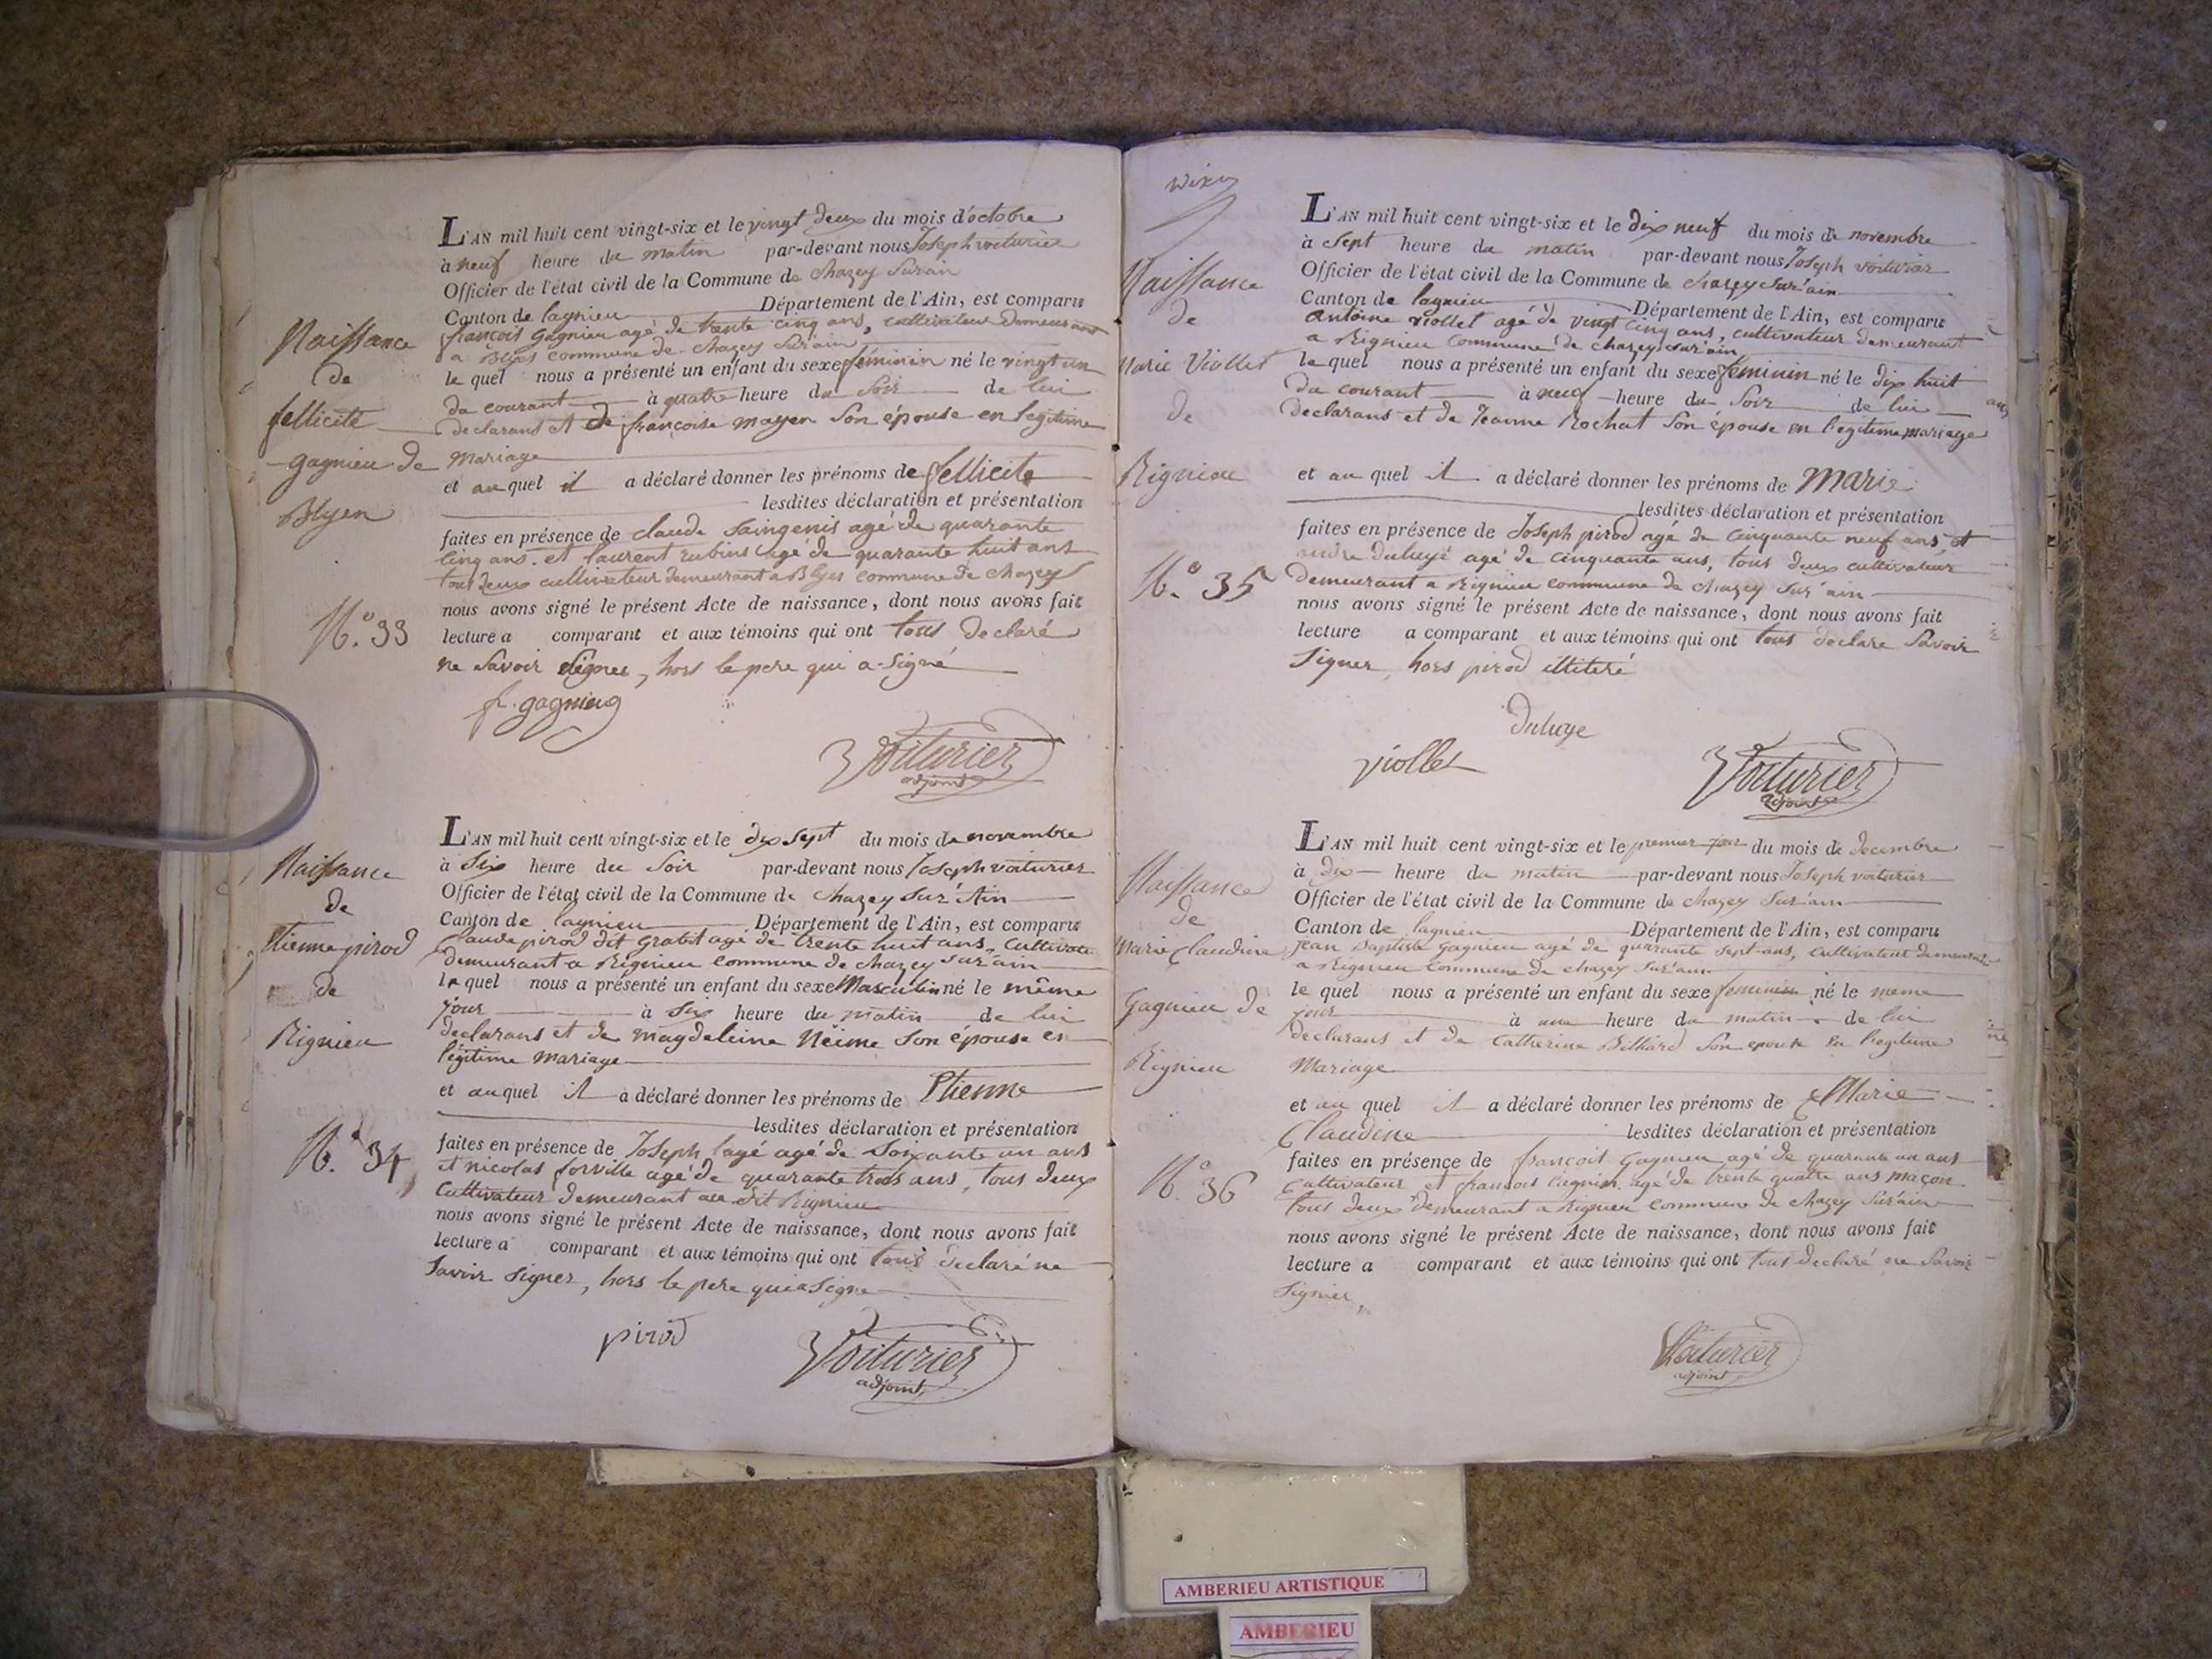 Naissance
de
fellicité
gagnieu de
Blyen
N.° 33
L'AN mil huit cent vingt-six et le vingt deux du mois d'octobre
à neuf heure du matin par-devant nous Joseph voiturier
Officier de l'état civil de la Commune de chazey surain
Canton de lagnieu Département de l'Ain, est comparu
françois Gagnieu agé de trente cinq ans, cultivateur demeurant
a Blyes commune de chazey sur'ain
le quel nous a présenté un enfant du sexe féminin né le vingt un
du courant à quatre heure du soir de lui
declarant et de françoise mayen son épouse en legitime
mariage
et au quel il a déclaré donner les prénoms de fellicite
lesdites déclaration et présentation
faites en présence de claude saingenis agé de quarante
cinq ans. et laurent rubins agé de quarante huit ans
tous deux cultivateur demeurant a Blyes commune de chazey
nous avons signé le présent Acte de naissance, dont nous avons fait
lecture a comparant et aux témoins qui ont tous declaré
ne savoir signer, hors le pere qui a signé
f. gagnieu
Voiturier
adjoint
Naissance
de
Etienne pirod
de
Rignieu
N.° 34
L'AN mil huit cent vingt-six et le dix sept du mois de novembre
à six heure du soir par-devant nous Joseph voiturier
Officier de l'état civil de la Commune de chazey sur'Ain
Canton de lagnieu Département de l'Ain, est comparu
Claude pirod dit gratet agé de trente huit ans, cultivate
demeurant a Rignieu commune de chazey sur'ain
le quel nous a présenté un enfant du sexe Masculin né le même
jour à six heure du matin de lui
declarans et de magdeleine Néime son épouse en
légitime mariage
et au quel il a déclaré donner les prénoms de Etienne
lesdites déclaration et présentation
faites en présence de Joseph layé agé de soixante un ans
et nicolas forville agé de quarante trois ans, tous deux
cultivateur demeurant au dit Rignieu
nous avons signé le présent Acte de naissance, dont nous avons fait
lecture a comparant et aux témoins qui ont tous declaré ne
savoir signer, hors le pere qui a signe
pirod
Voiturier
adjoint
Naissance
de
Marie Viollet
de
Rignieu
N.° 35
L'AN mil huit cent vingt-six et le dix neuf du mois de novembre
à sept heure du matin par-devant nous Joseph voiturier
Officier de l'état civil de la Commune de chazey sur'ain
Canton de lagnieu Département de l'Ain, est comparu
Antoine viollet agé de vingt cinq ans, cultivateur demeurant
a Rignieu commune de chazey sur'ain
le quel nous a présenté un enfant du sexe feminin né le dix huit
du courant à neuf heure du soir de lui
declarans et de Jeanne Rochat son épouse en legitime mariage
et au quel il a déclaré donner les prénoms de Marie
lesdites déclaration et présentation
faites en présence de Joseph pirod agé de cinquante neuf ans, et
andre duluyé agé de cinquante ans, tous deux cultivateur
demeurant a Rignieu commune de chazey sur'ain
nous avons signé le présent Acte de naissance, dont nous avons fait
lecture a comparant et aux témoins qui ont tous declare savoir
signer, hors pirod illiteré
Duluye
viollet
Voiturier
adjoint
Naissance
de
Marie Claudine
Gagnieu de
Rignieu
N.° 36
L'AN mil huit cent vingt-six et le premier jour du mois de decembre
à dix heure du matin par-devant nous Joseph voiturier
Officier de l'état civil de la Commune de chazey sur'ain
Canton de lagnieu Département de l'Ain, est comparu
Jean Baptiste Gagnieu agé de quarante sept ans, cultivateur demeurant
a Rignieu commune de chazey sur'ain
le quel nous a présenté un enfant du sexe feminin né le meme
jour à une heure du matin de lui
declarans et de Catherine Billiard son epouse en legitime
Mariage
et au quel il a déclaré donner les prénoms de Marie
Claudine lesdites déclaration et présentation
faites en présence de françois Gagnieu agé de quarante un ans
cultivateur et francois Cagnin agé de trente quatre ans maçon
tous deux demeurant a Rignieu commune de chazey sur'ain
nous avons signé le présent Acte de naissance, dont nous avons fait
lecture a comparant et aux témoins qui ont tous declaré ne savoir
signer,
Voiturier
adjoint
AMBERIEU ARTISTIQUE
AMBERIEU